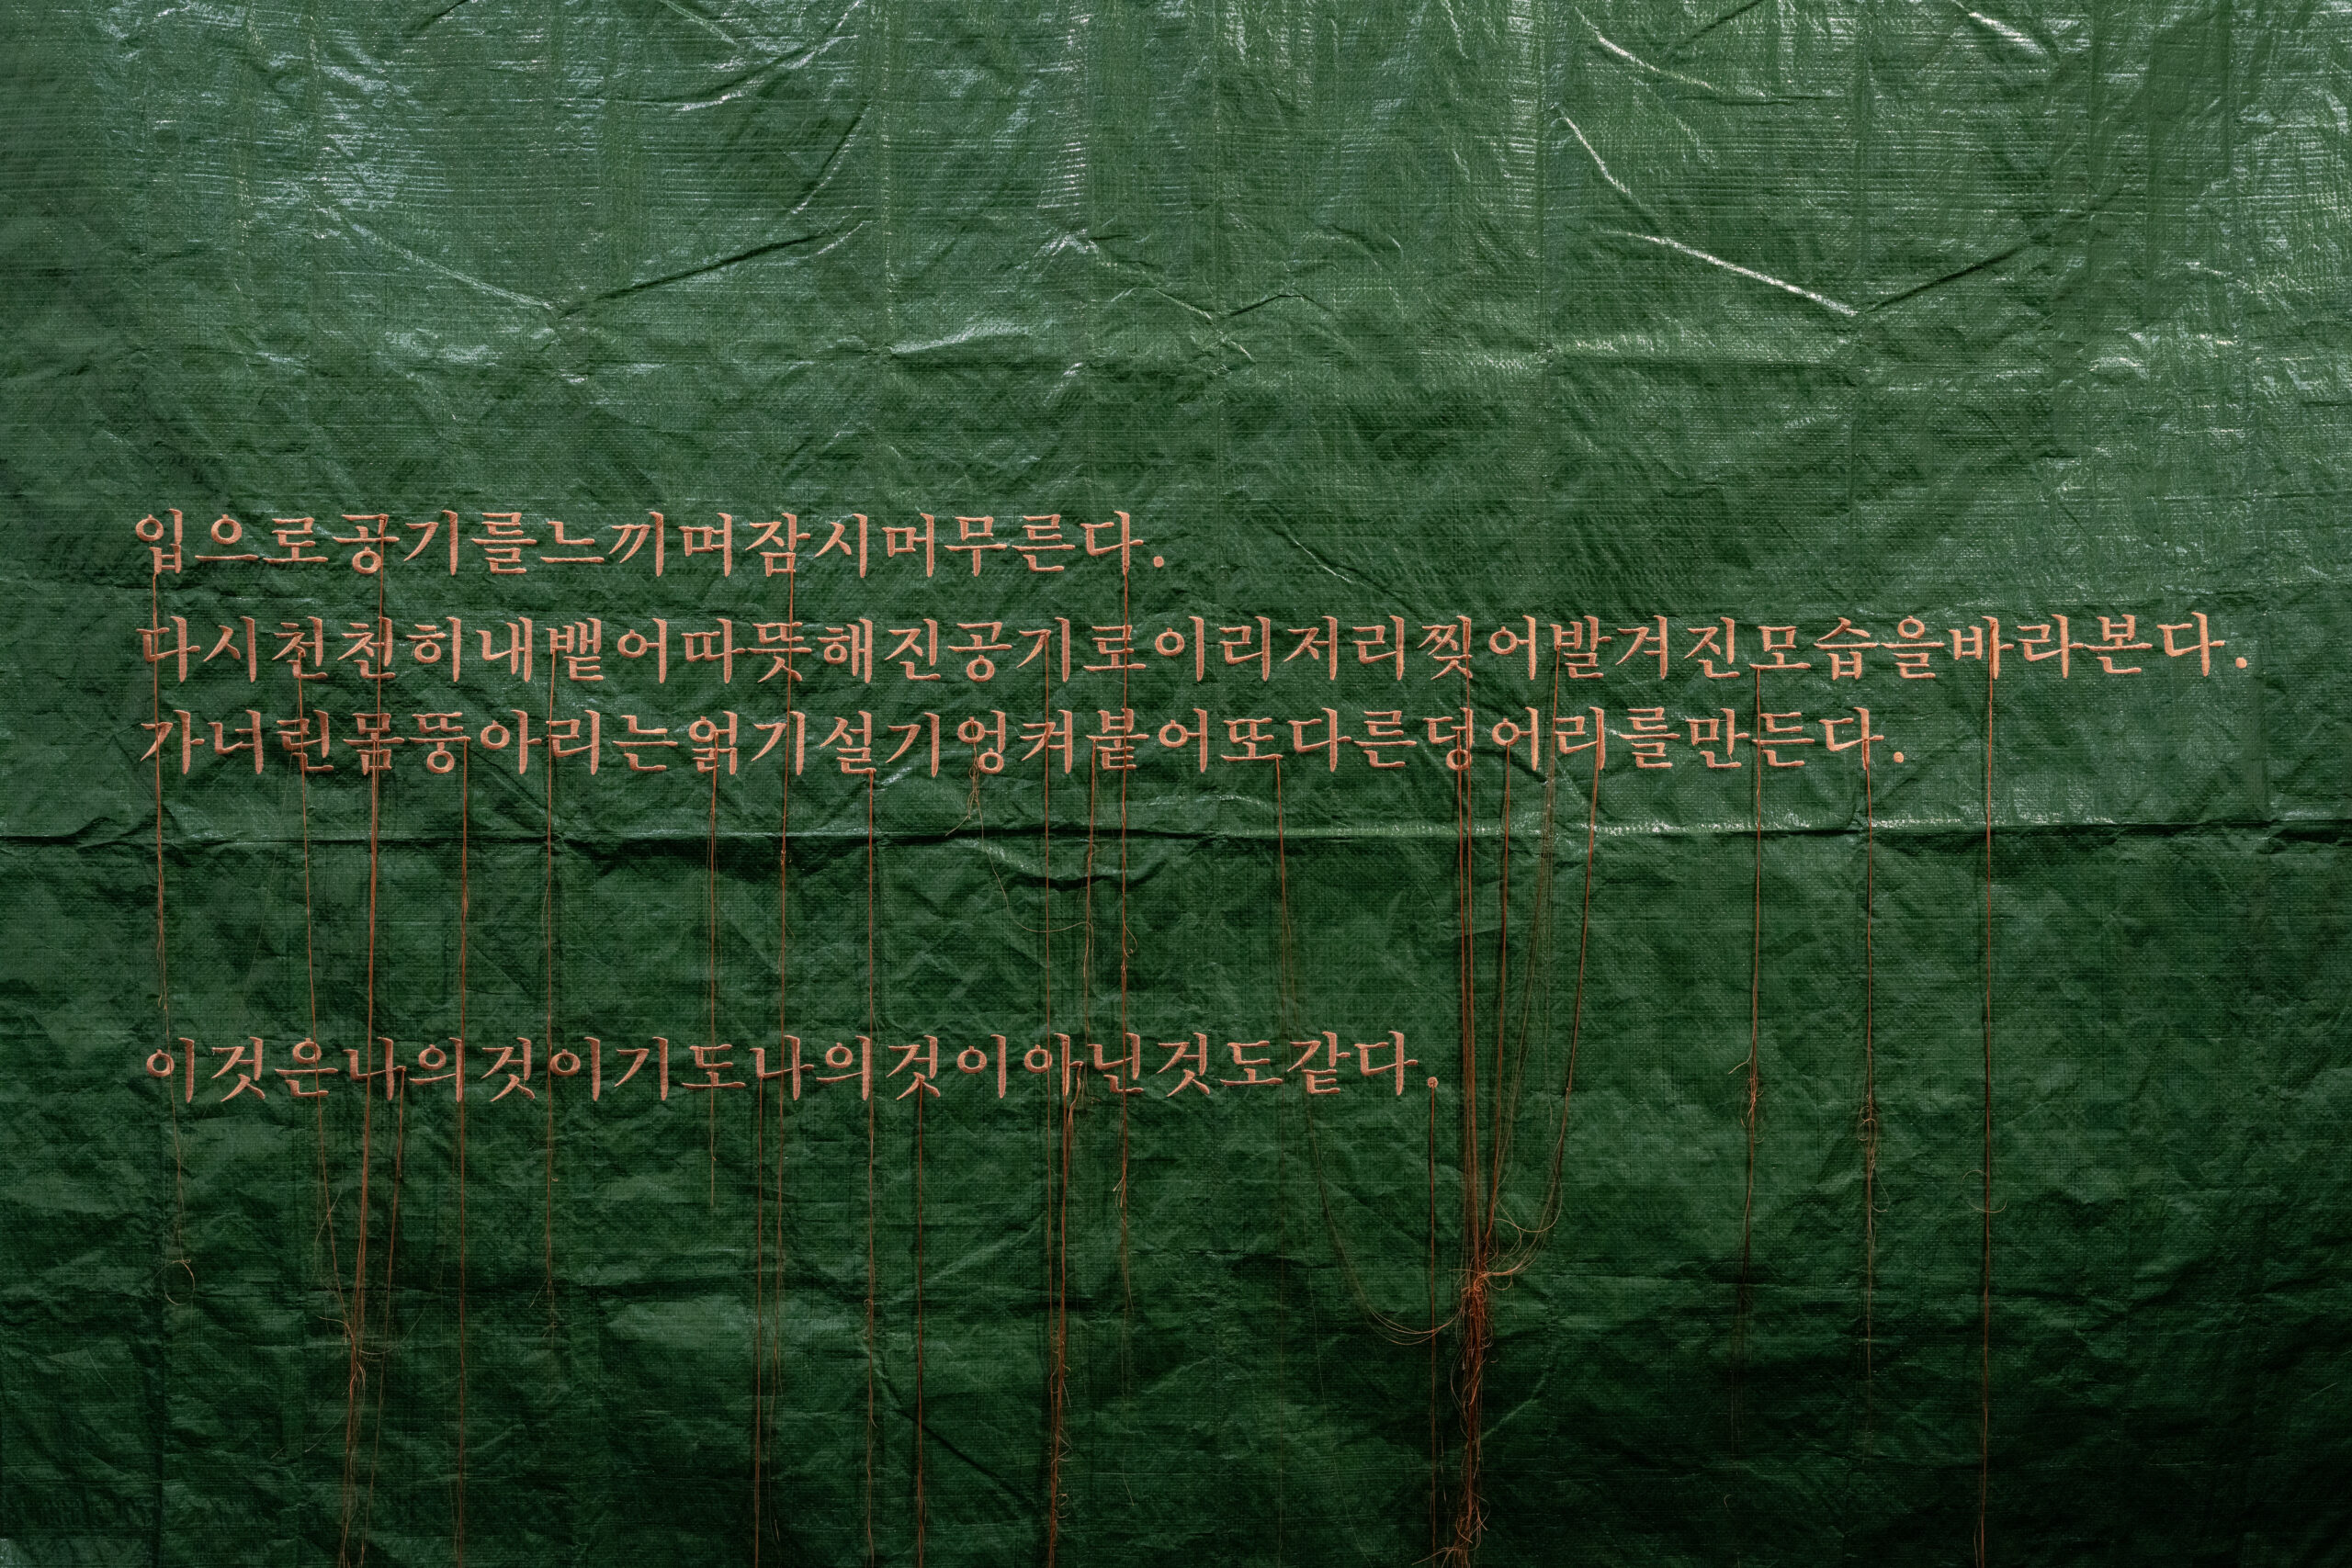 입으로공기를느끼며잠시머무른다.
다시천천히내뱉어따뜻해진공기로이리저리찢어발겨진모습을바라본다.
가녀린몸뚱아리는얽기설기엉켜붙어또다른덩어리를만든다.
이것은나의것이기도나의것이아닌것도같다.